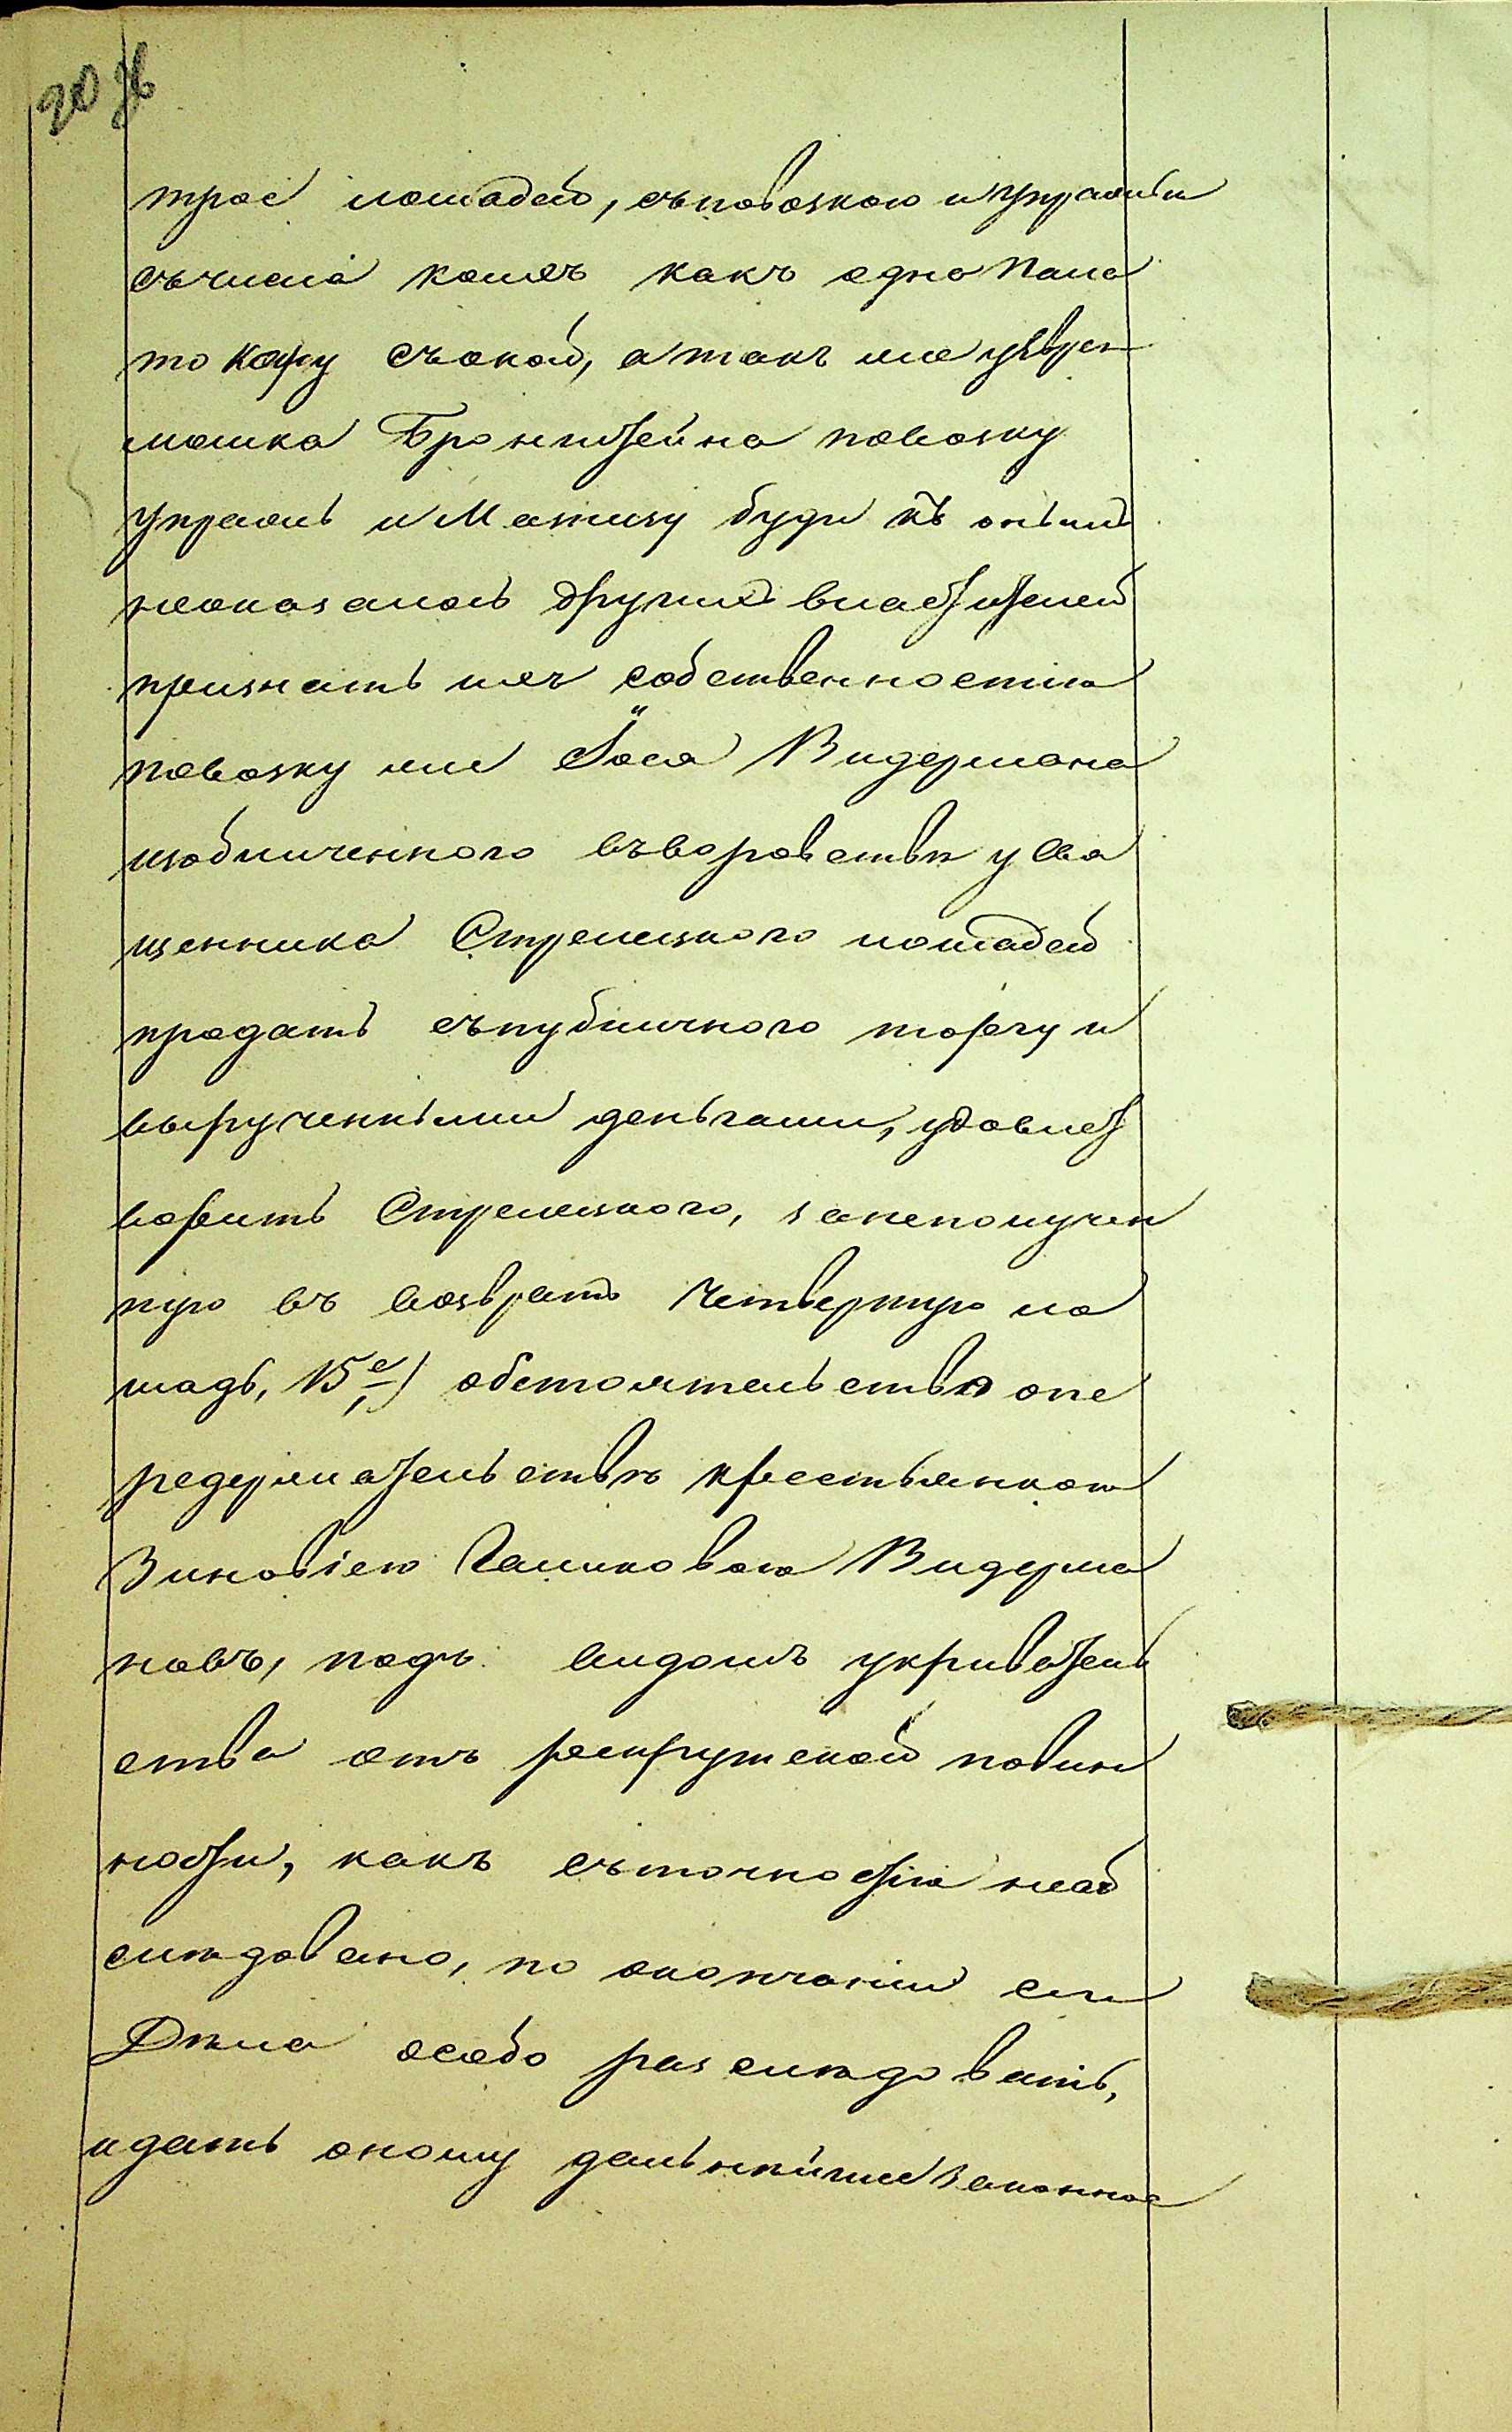 трое лошадей, съповозкою иупряжью
съчисла коихъ какъ одно
то кару съокой, атакъ же уЕврея
мошка Бронштейна повозку
упряжь и буди къ онымъ
неоказалось другихъ владѣтелей
признать ихъ собственностію
повозку же Іося Видермана
изобличенного въворовствѣ усвя
щенника Стрелецкого лошадей
продать съпубличного торгу и
вырученными деньгами, удовлет
ворить Стрелецкого, занеполучен
ную въ возвратъ четвертую ло
шадь, 15е,) обстоятельство опе
редержательствѣ крестьянкою
Зиновіею Галиковою Видерма
новъ, подъ видомъ укриватель
ства отъ рекрутской повин
ности, какъ съточностію необ
слѣдовано, по окончаніи сего
Дѣла особо разслѣдовать,
идать оному дальнѣйшее законное